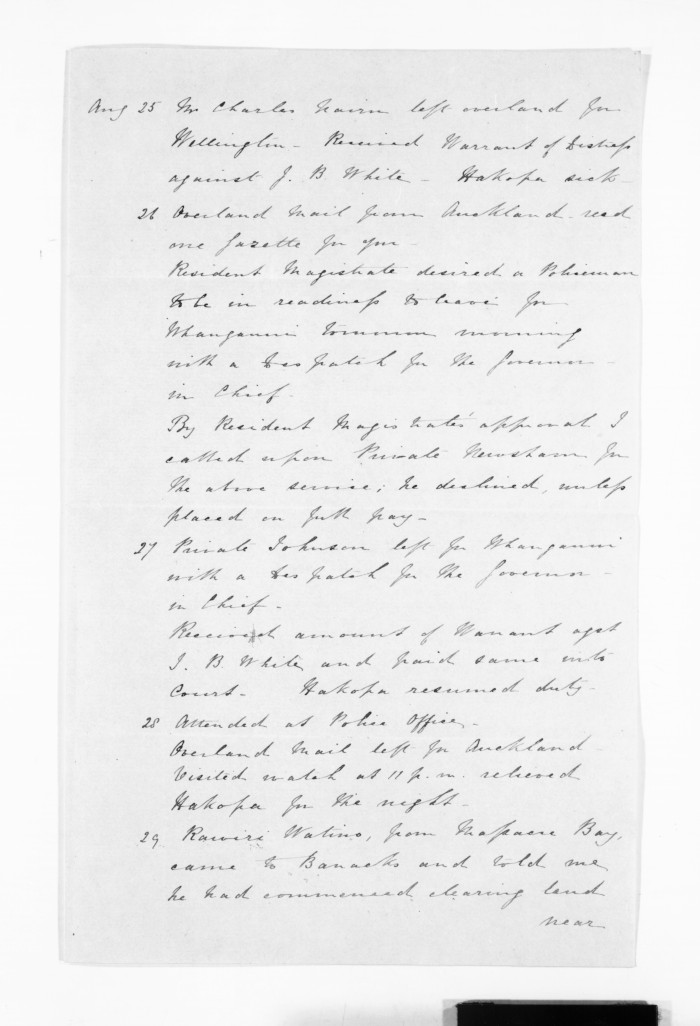 Aug 25 Mr Charles Nairn left overland for
Wellington - Received Warrant of Distress
against J. B. White - Hakopa sick -
26 Overland Mail from Auckland - read
one Gazette for
Resident Magistrate desired a Policeman
to be in readiness to leave for
Whanganui tomorrow morning
with a Despatch for the Governor -
in Chief.
By Resident Magistrate's approval I
called upon Private Newsham for
the above service; he declined, unless
placed on full pay -
27 Private Johnson left for Whanganui
with a Despatch for the Governor -
in Chief -
Received amount of Warrant agst
J. B. White and paid same into
Court - Hakopa resumed duty -
28 Attended at Police Office -
Overland Mail left for Auckland -
Visited watch at 11 p.m. relieved
Hakopa for the night -
29 Rawiri Watino, from Massacre Bay,
came to Barracks and told me
he had commenced clearing land
near